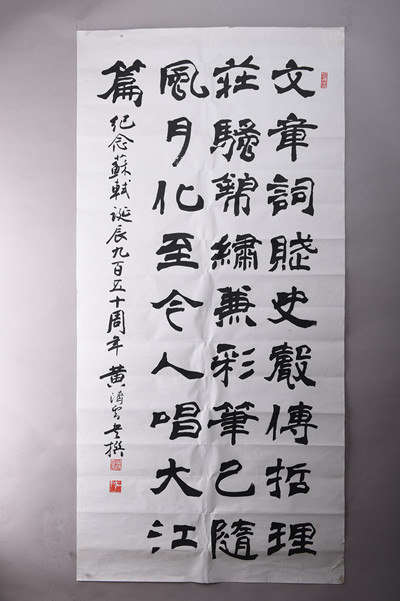 文章詞賦史聲傳哲理
莊騷錦繡兼彩筆已隨
風月化至今人唱大江
篇 紀念蘇軾誕辰九百五十周年 黄 撰